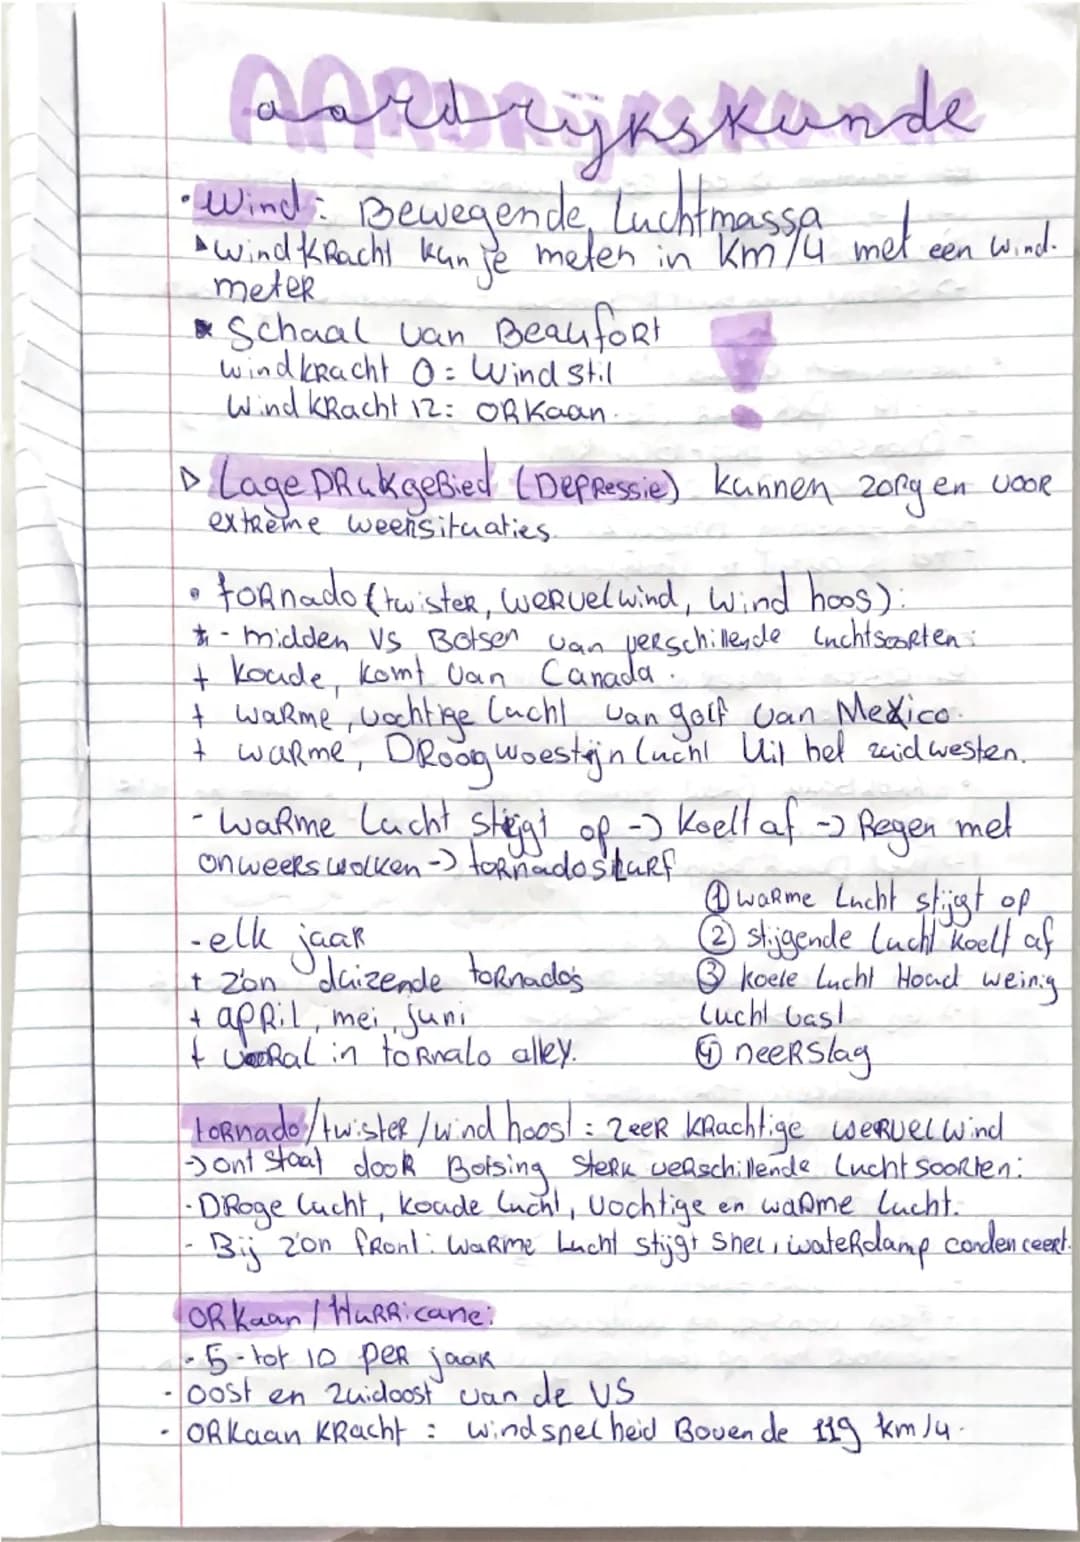 aardrijkskunde
• Wind: Bewegende luchtmassa
▸ windkracht kan je meten in Km/u met een wind-
meter
▸ Schaal van Beaufort
windkracht 0 = Windstil
Windkracht 12: ORkaan.
▷ Lage DRukgeBied (DepRessie) kunnen zorgen voor
extreme weersituaties.
• toRnado (twister, wervelwind, Wind hoos):
* - midden VS Botsen van verschillende luchtsoorten:
+ Koude, komt van Canada.
+ waRme, vochtige lucht van golf van Mexico.
+ waRme, DRoog woestijn lucht Uit het zuidwesten.
- waRme lucht stijgt op -> Koelt af -> Regen met
onweerswolken -> toRnadoslurf
① waRme lucht stijgt op
- elk jaar
② stijgende lucht koelt af
+ zo'n duizende toRnado's
③ koele lucht Houd weinig
+ april, mei, juni
lucht vast
+ vooRal in toRnalo alley.
④ neeRslag
toRnado/twister/wind hoost: zeeR kRachtige weRvelwind
-> ont staat dooR Botsing steRk verschillende luchtsoorten:
- DRoge lucht, koude lucht, vochtige en waRme lucht.
- Bij zo'n fRont: waRme lucht stijgt snel, wateRdamp condenceert.
ORkaan / HuRRicane:
- 5 - tot 10 peR jaaR
- oost en zuidoost van de VS
- ORkaan KRacht: windsnelheid Boven de 119 km/u.